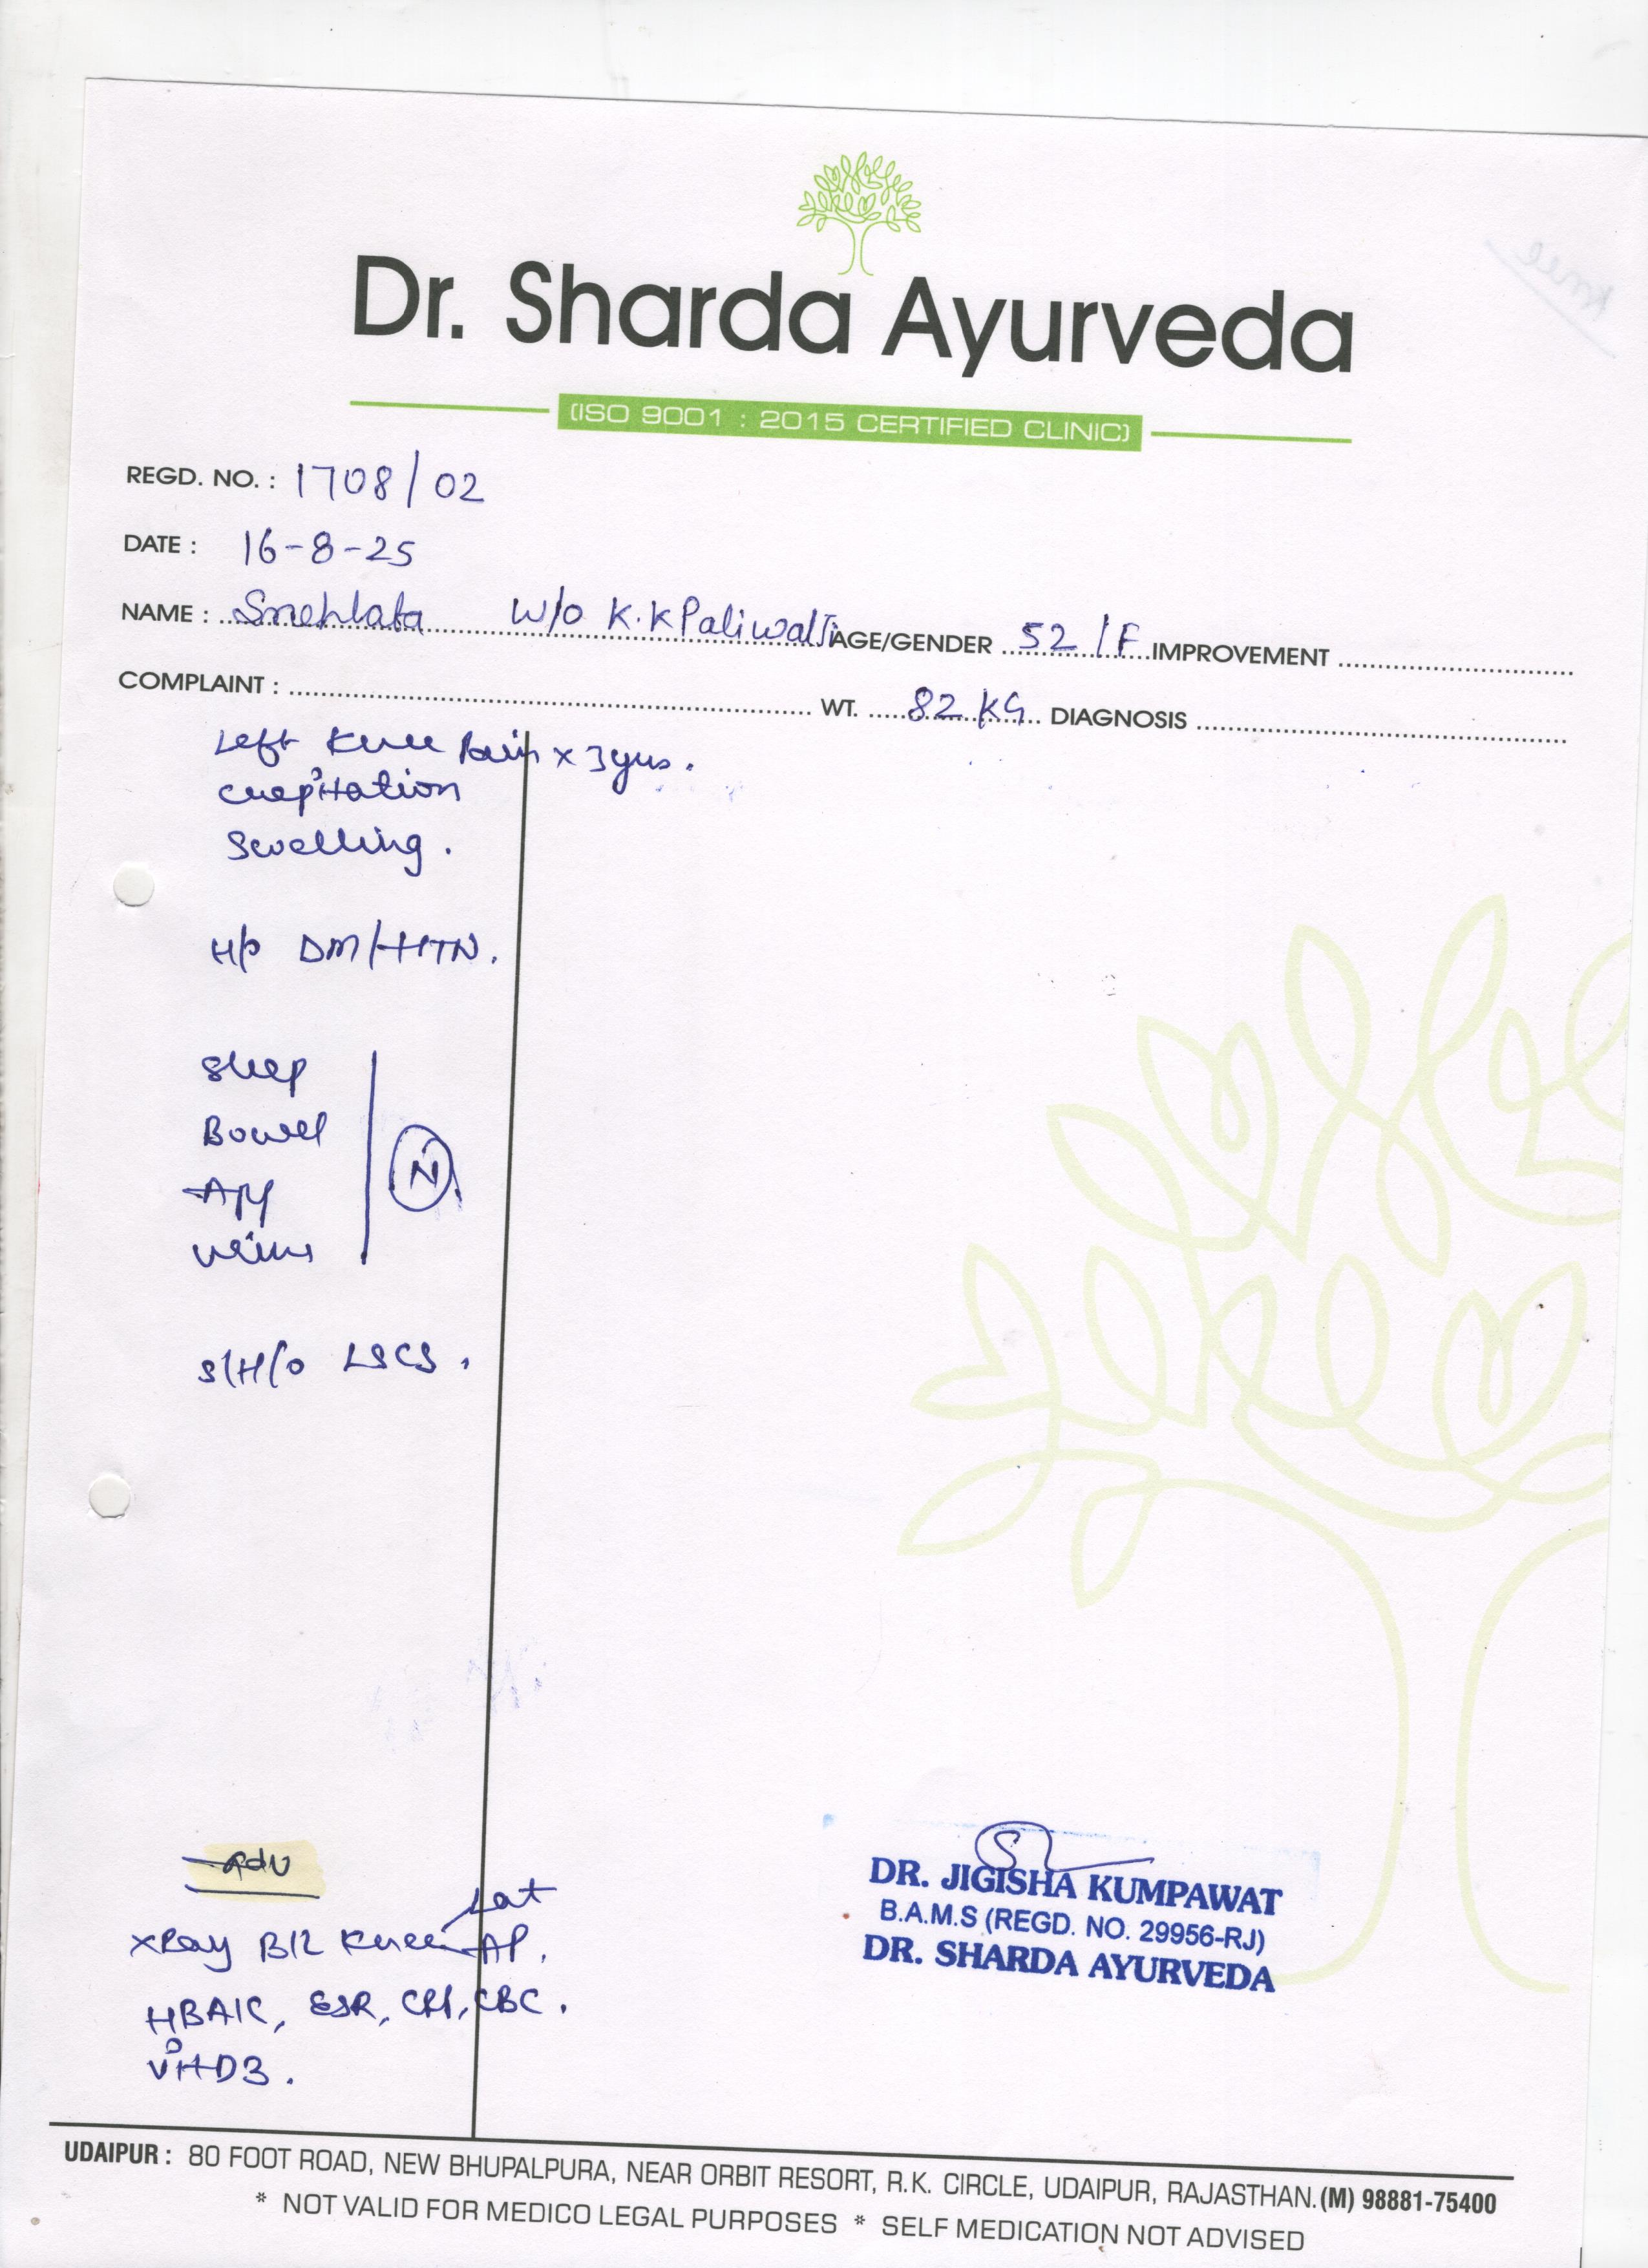 Dr. Sharda Ayurveda
(ISO 9001 : 2015 CERTIFIED CLINIC)
REGD. NO. : 1708/02
DATE : 16-8-25
NAME : Snehlata W/o K.K Paliwal Ji AGE/GENDER 52/F IMPROVEMENT
COMPLAINT : WT. 82 KG DIAGNOSIS
Left Knee Pain x 3 yrs.
crepitation
Swelling.
DM/HTN.
Sleep
Bowel
App
Urine
N
S/H/o LSCS.
Adv
Lat
XRay B/L Knee AP.
HBA1C, ESR, CRP, CBC.
Vit D3.
DR. JIGISHA KUMPAWAT
B.A.M.S (REGD. NO. 29956-RJ)
DR. SHARDA AYURVEDA
UDAIPUR : 80 FOOT ROAD, NEW BHUPALPURA, NEAR ORBIT RESORT, R.K. CIRCLE, UDAIPUR, RAJASTHAN. (M) 98881-75400
* NOT VALID FOR MEDICO LEGAL PURPOSES * SELF MEDICATION NOT ADVISED